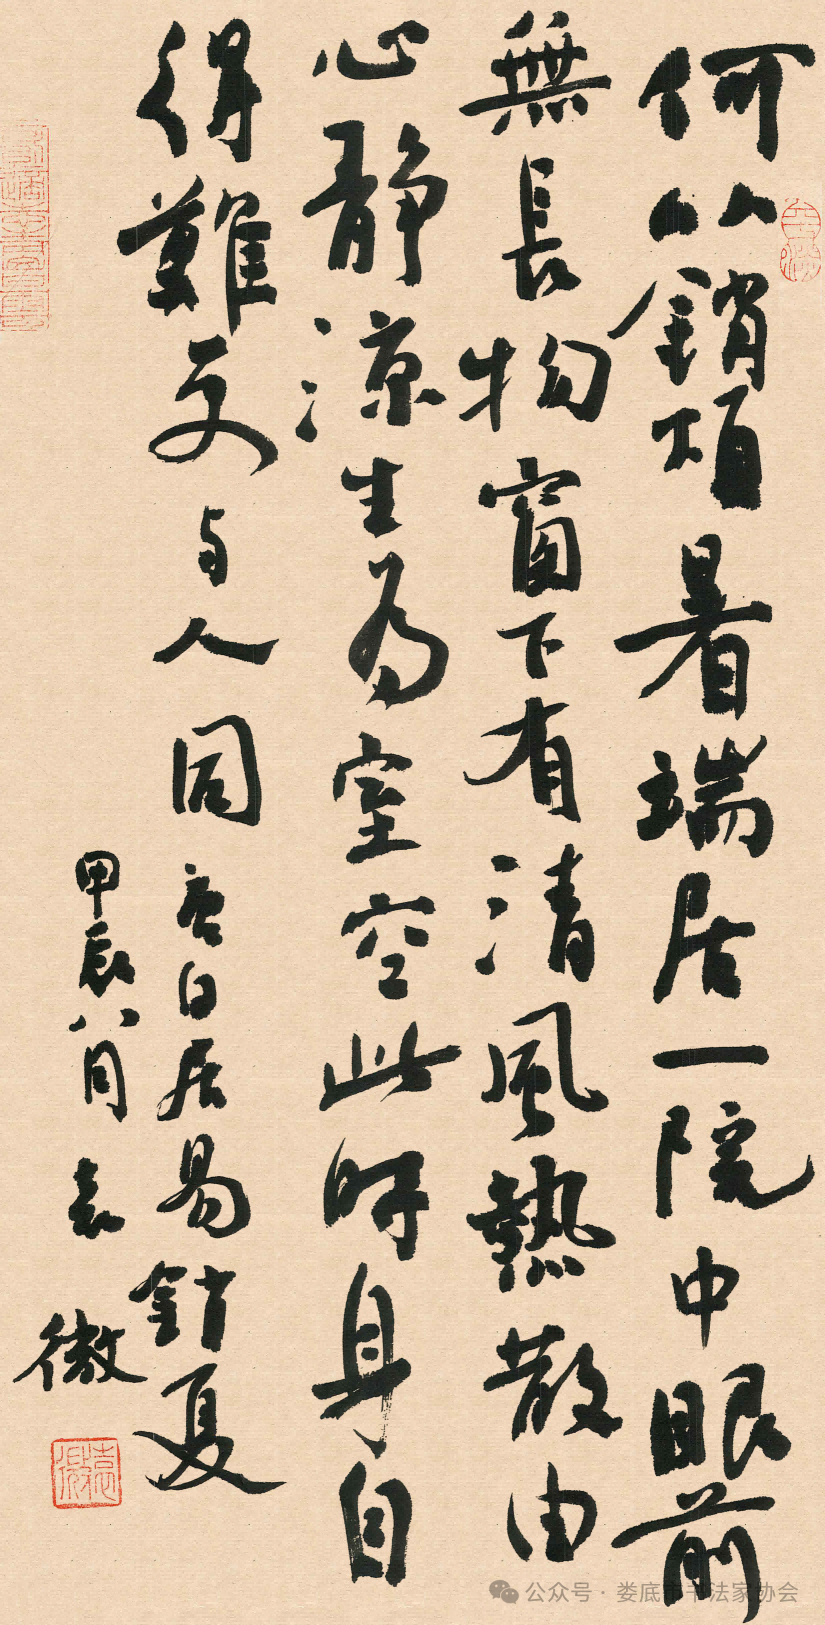 何以銷煩暑端居一院中眼前
無長物窗下有清風熱散由
心靜涼生為室空此時身自
得難更与人同唐白居易銷夏
甲辰八月袁微
公众号·娄底市书法家协会